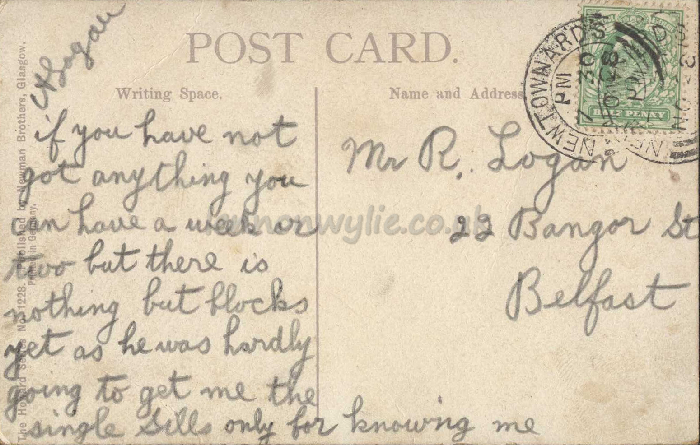 POST CARD.
Writing Space.
Name and Address
Logan
if you have not
got anything you
can have a week or
two but there is
nothing but blocks
yet as he was hardly
going to get me the
single sills only for know'ng me
Mr R. Logan
22 Bangor St
Belfast
The Howard Series No. 1228. Published by Newman Brothers, Glasgow.
Printed in Germany.
NEWTOWNARDS
PM
30
HALF PENNY